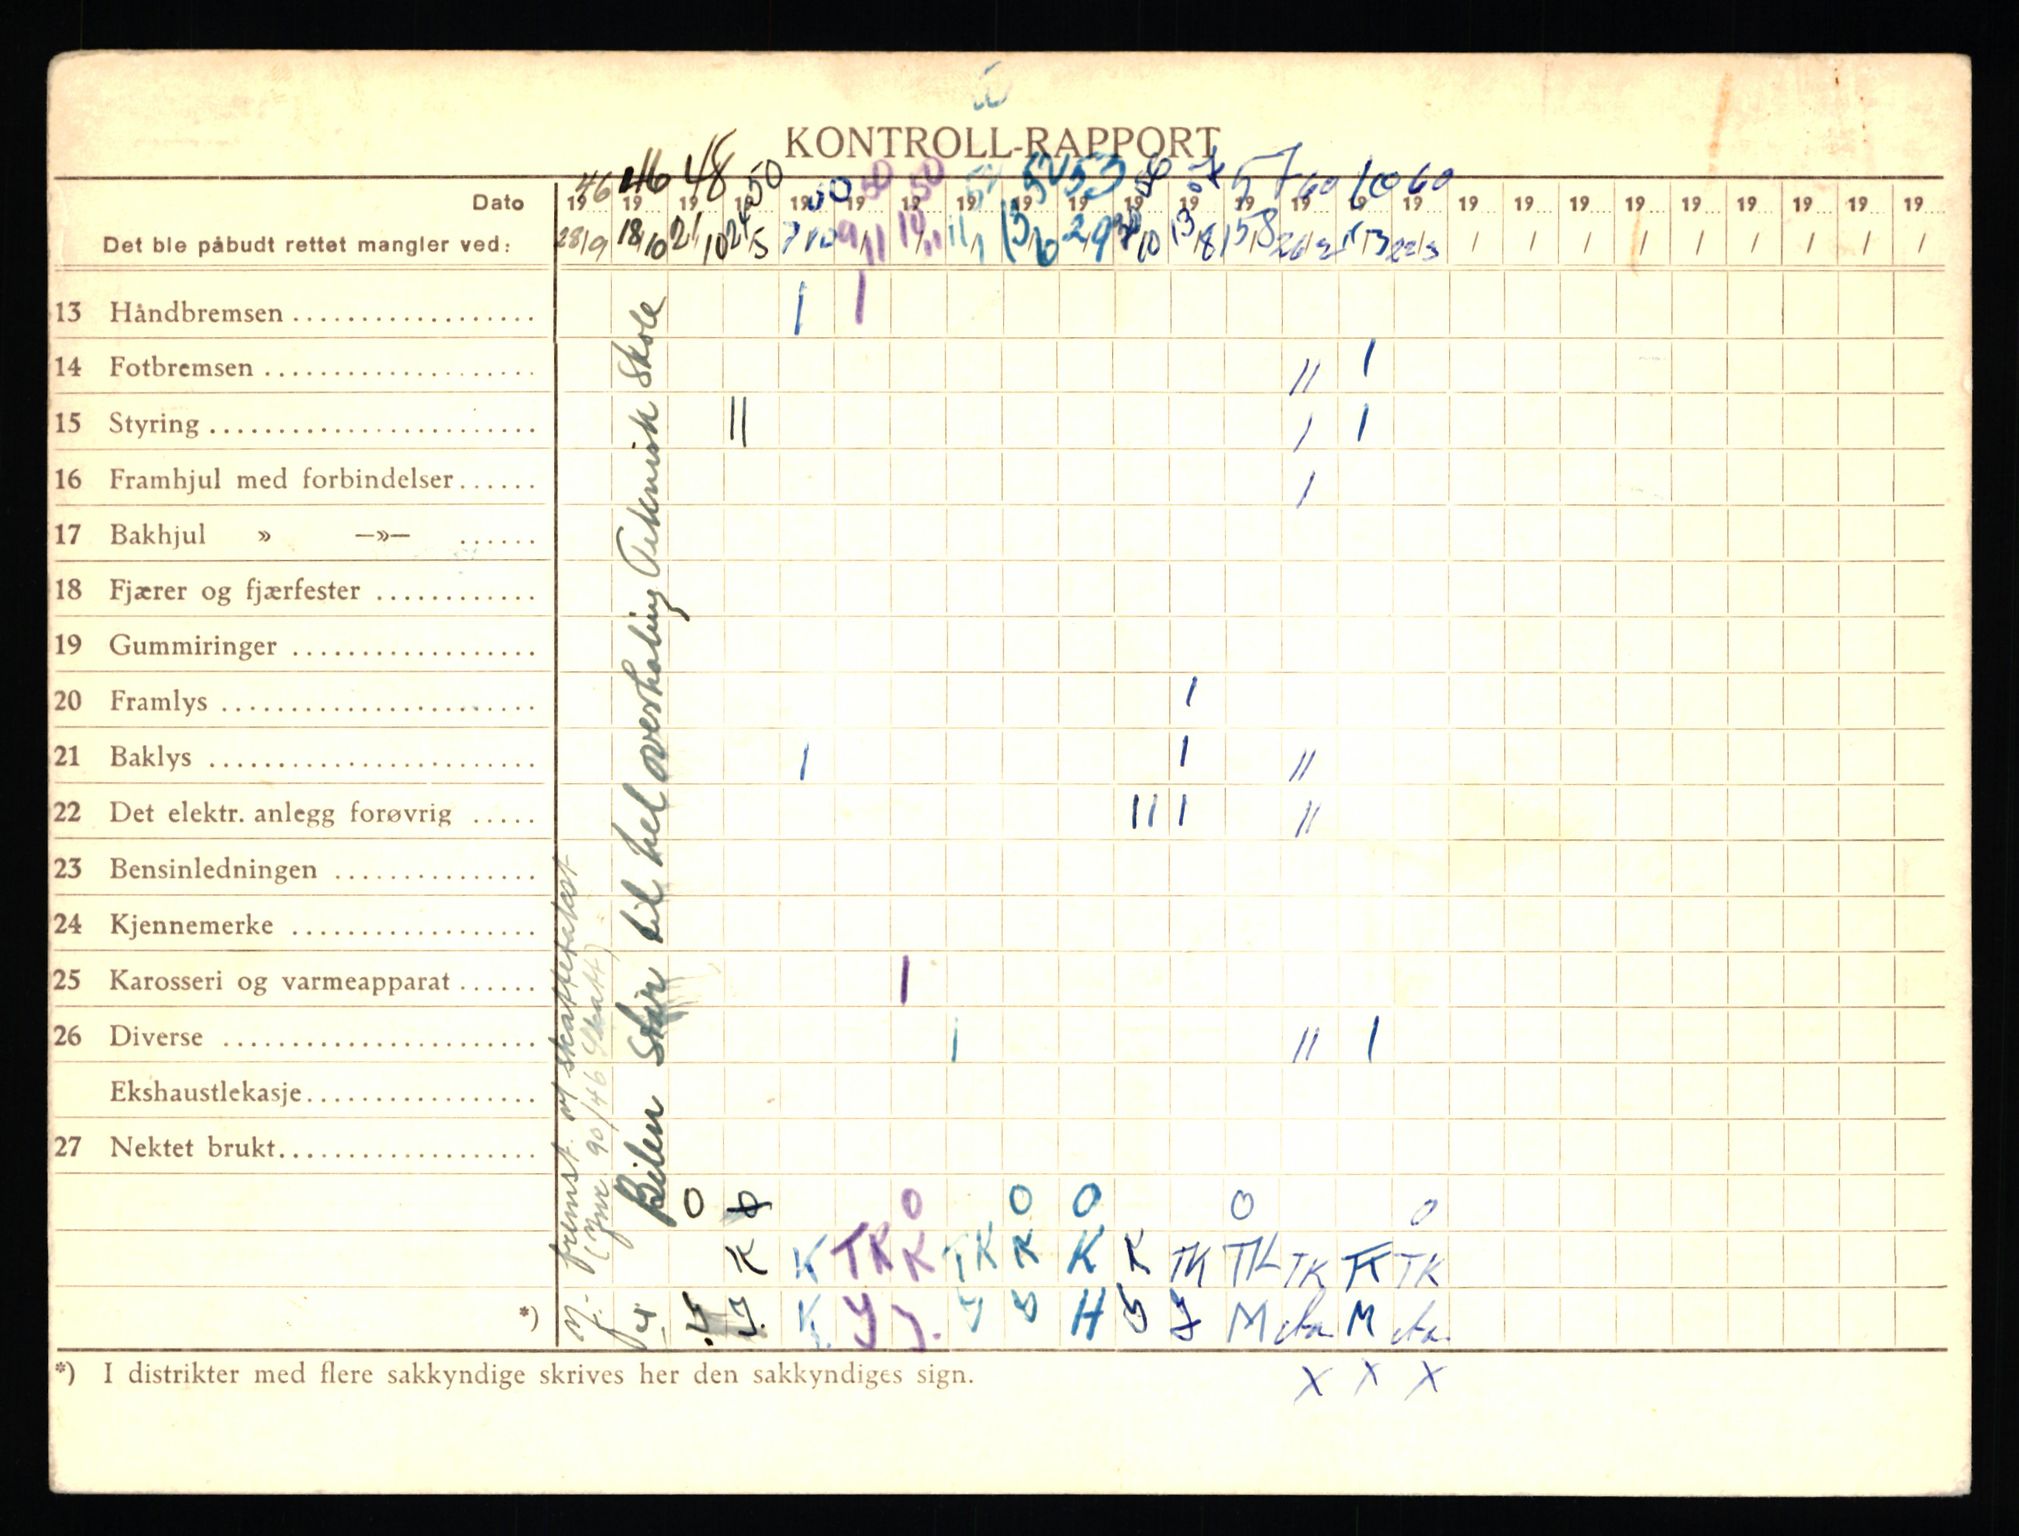 KONTROLL-RAPPORT
46 46 48 50 50 50 50 52 52 53 56 57 57 60 60 60
Dato 19 19 19 19 19 19 19 19 19 19 19 19 19 19 19 19 19 19 19 19 19 19 19 19 19
Det ble påbudt rettet mangler ved: 28/9 18/10 21/10 24/5 9/11 10/11 11/1 13/6 2/9 10 13/8 15/8 22/3
13 Håndbremsen I I
14 Fotbremsen II I
15 Styring II I I
16 Framhjul med forbindelser I
17 Bakhjul » —»—
18 Fjærer og fjærfester
19 Gummiringer
20 Framlys I
21 Baklys I I II
22 Det elektr. anlegg forøvrig III I II
23 Bensinledningen
24 Kjennemerke
25 Karosseri og varmeapparat I
26 Diverse I II I
Ekshaustlekasje
27 Nektet brukt
fremst. v/ skattetakst
(Jnr 90/46 Skatt)
Bilen skir til hel overhaling Teknisk Skole
O O O O O O
K K TK K TK K K K TK TK TK TK TK
*) Y. K. Y H M M
*) I distrikter med flere sakkyndige skrives her den sakkyndiges sign.
X X X